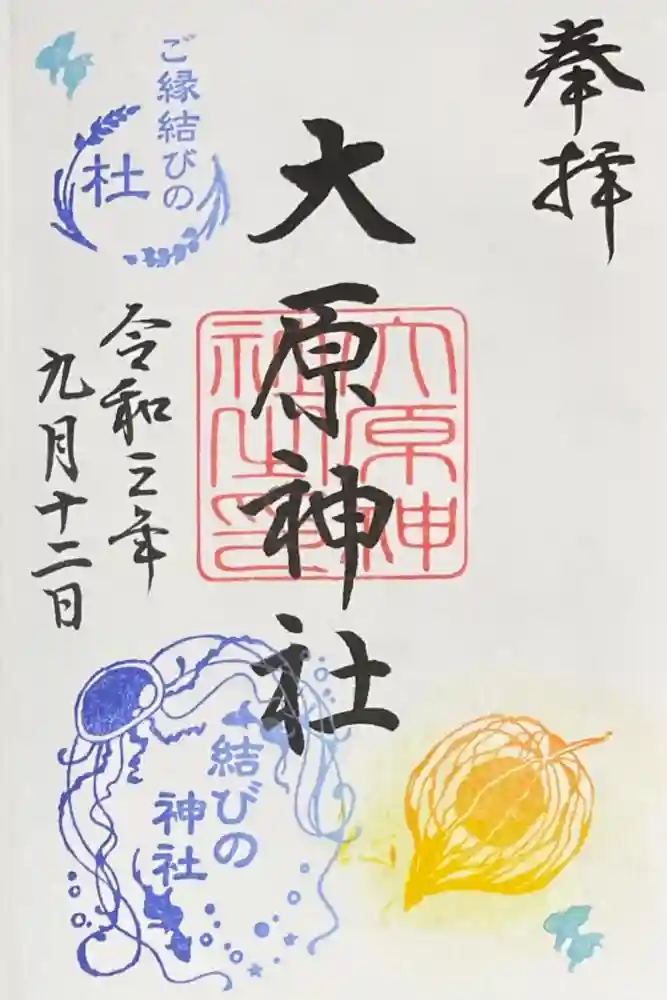 奉拝
大原神社
大原神
社之印
ご縁結びの
杜
令和三年
九月十二日
結びの
神社